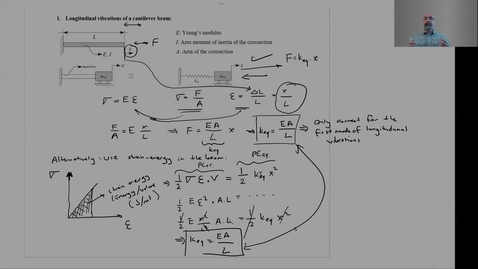 1. Longitudinal vibrations of a cantilever beam:
E: Young's modulus
I: Area moment of inertia of the crosssection
A: Area of the crosssection
L
F
E, I
x
F = keq . x
σ = E ε
σ = F/A
ε = ΔL/L = x/L
F/A = E x/L ⇒ F = EA/L x ⇒ keq = EA/L ⇒ Only correct for the
first mode of longitudinal
vibrations
keq
Alternatively: use strain-energy in the beam.
PEeq
σ
strain energy
(Energy/volume)
(J/m³)
ε
⇒ 1/2 σ ε . V = 1/2 keq x²
1/2 E ε² . A.L = ....
1/2 E x²/L² A.L = 1/2 keq x²
⇒ keq = EA/L